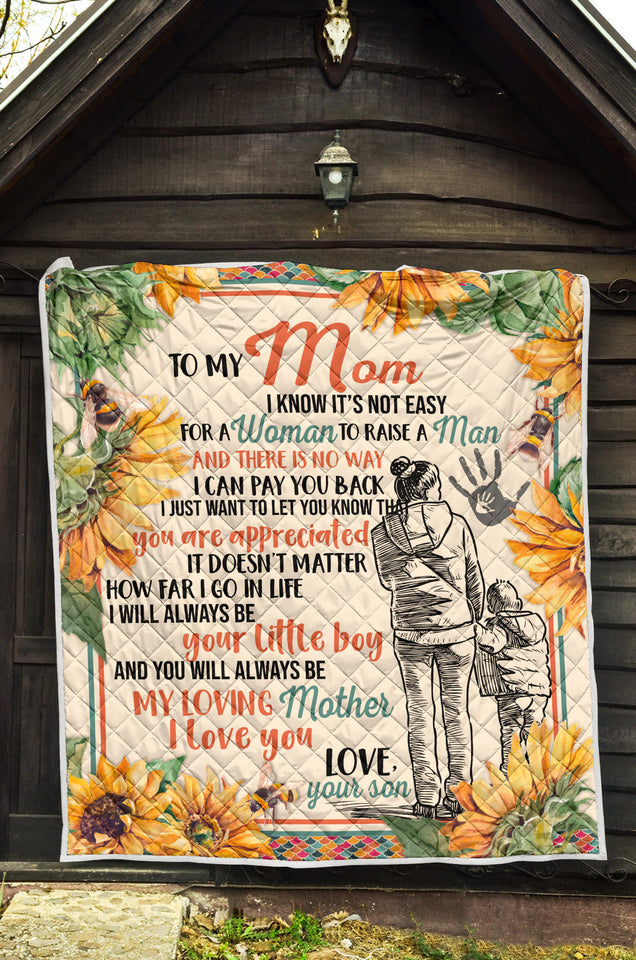 TO MY Mom
I KNOW IT'S NOT EASY
FOR A Woman TO RAISE A Man
AND THERE IS NO WAY
I CAN PAY YOU BACK
I JUST WANT TO LET YOU KNOW THA
you are appreciated
IT DOESN'T MATTER
HOW FAR I GO IN LIFE
I WILL ALWAYS BE
your little boy
AND YOU WILL ALWAYS BE
MY LOVING Mother
I love you
LOVE,
your son